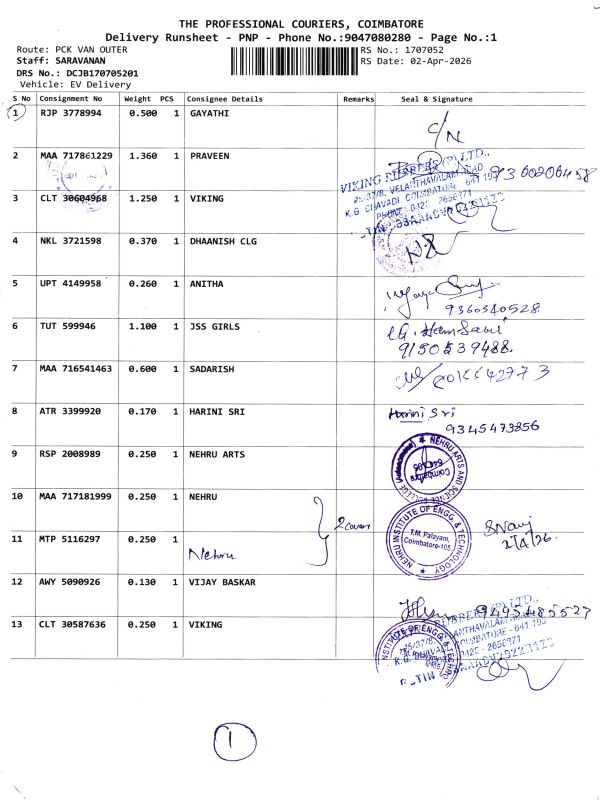 THE PROFESSIONAL COURIERS, COIMBATORE
Delivery Runsheet - PNP - Phone No.:9047080280 - Page No.:1
Route: PCK VAN OUTER RS No.: 1707052
Staff: SARAVANAN RS Date: 02-Apr-2026
DRS No.: DCJB170705201
Vehicle: EV Delivery
S No Consignment No Weight PCS Consignee Details Remarks Seal & Signature
1 RJP 3778994 0.500 1 GAYATHI
C/N
2 MAA 717861229 1.360 1 PRAVEEN
9360206458
3 CLT 30604968 1.250 1 VIKING
VIKING RUBBER (P) LTD.,
25/37/B, VELANTHAVALAM ROAD
K.G. CHAVADI, COIMBATORE - 641 105
PHONE: 0422 - 2656271
4 NKL 3721598 0.370 1 DHAANISH CLG
5 UPT 4149958 0.260 1 ANITHA
9360340528
6 TUT 599946 1.100 1 JSS GIRLS
9150539488
7 MAA 716541463 0.600 1 SADARISH
8 ATR 3399920 0.170 1 HARINI SRI
Harini Sri
9345473856
9 RSP 2008989 0.250 1 NEHRU ARTS
NEHRU ARTS AND SCIENCE COLLEGE
(Autonomous)
Coimbatore
10 MAA 717181999 0.250 1 NEHRU
2 cover
NEHRU INSTITUTE OF ENGG. & TECHNOLOGY
T.M. Palayam,
Coimbatore-105.
2/4/26.
11 MTP 5116297 0.250 1
Nehru
12 AWY 5090926 0.130 1 VIJAY BASKAR
13 CLT 30587636 0.250 1 VIKING
1